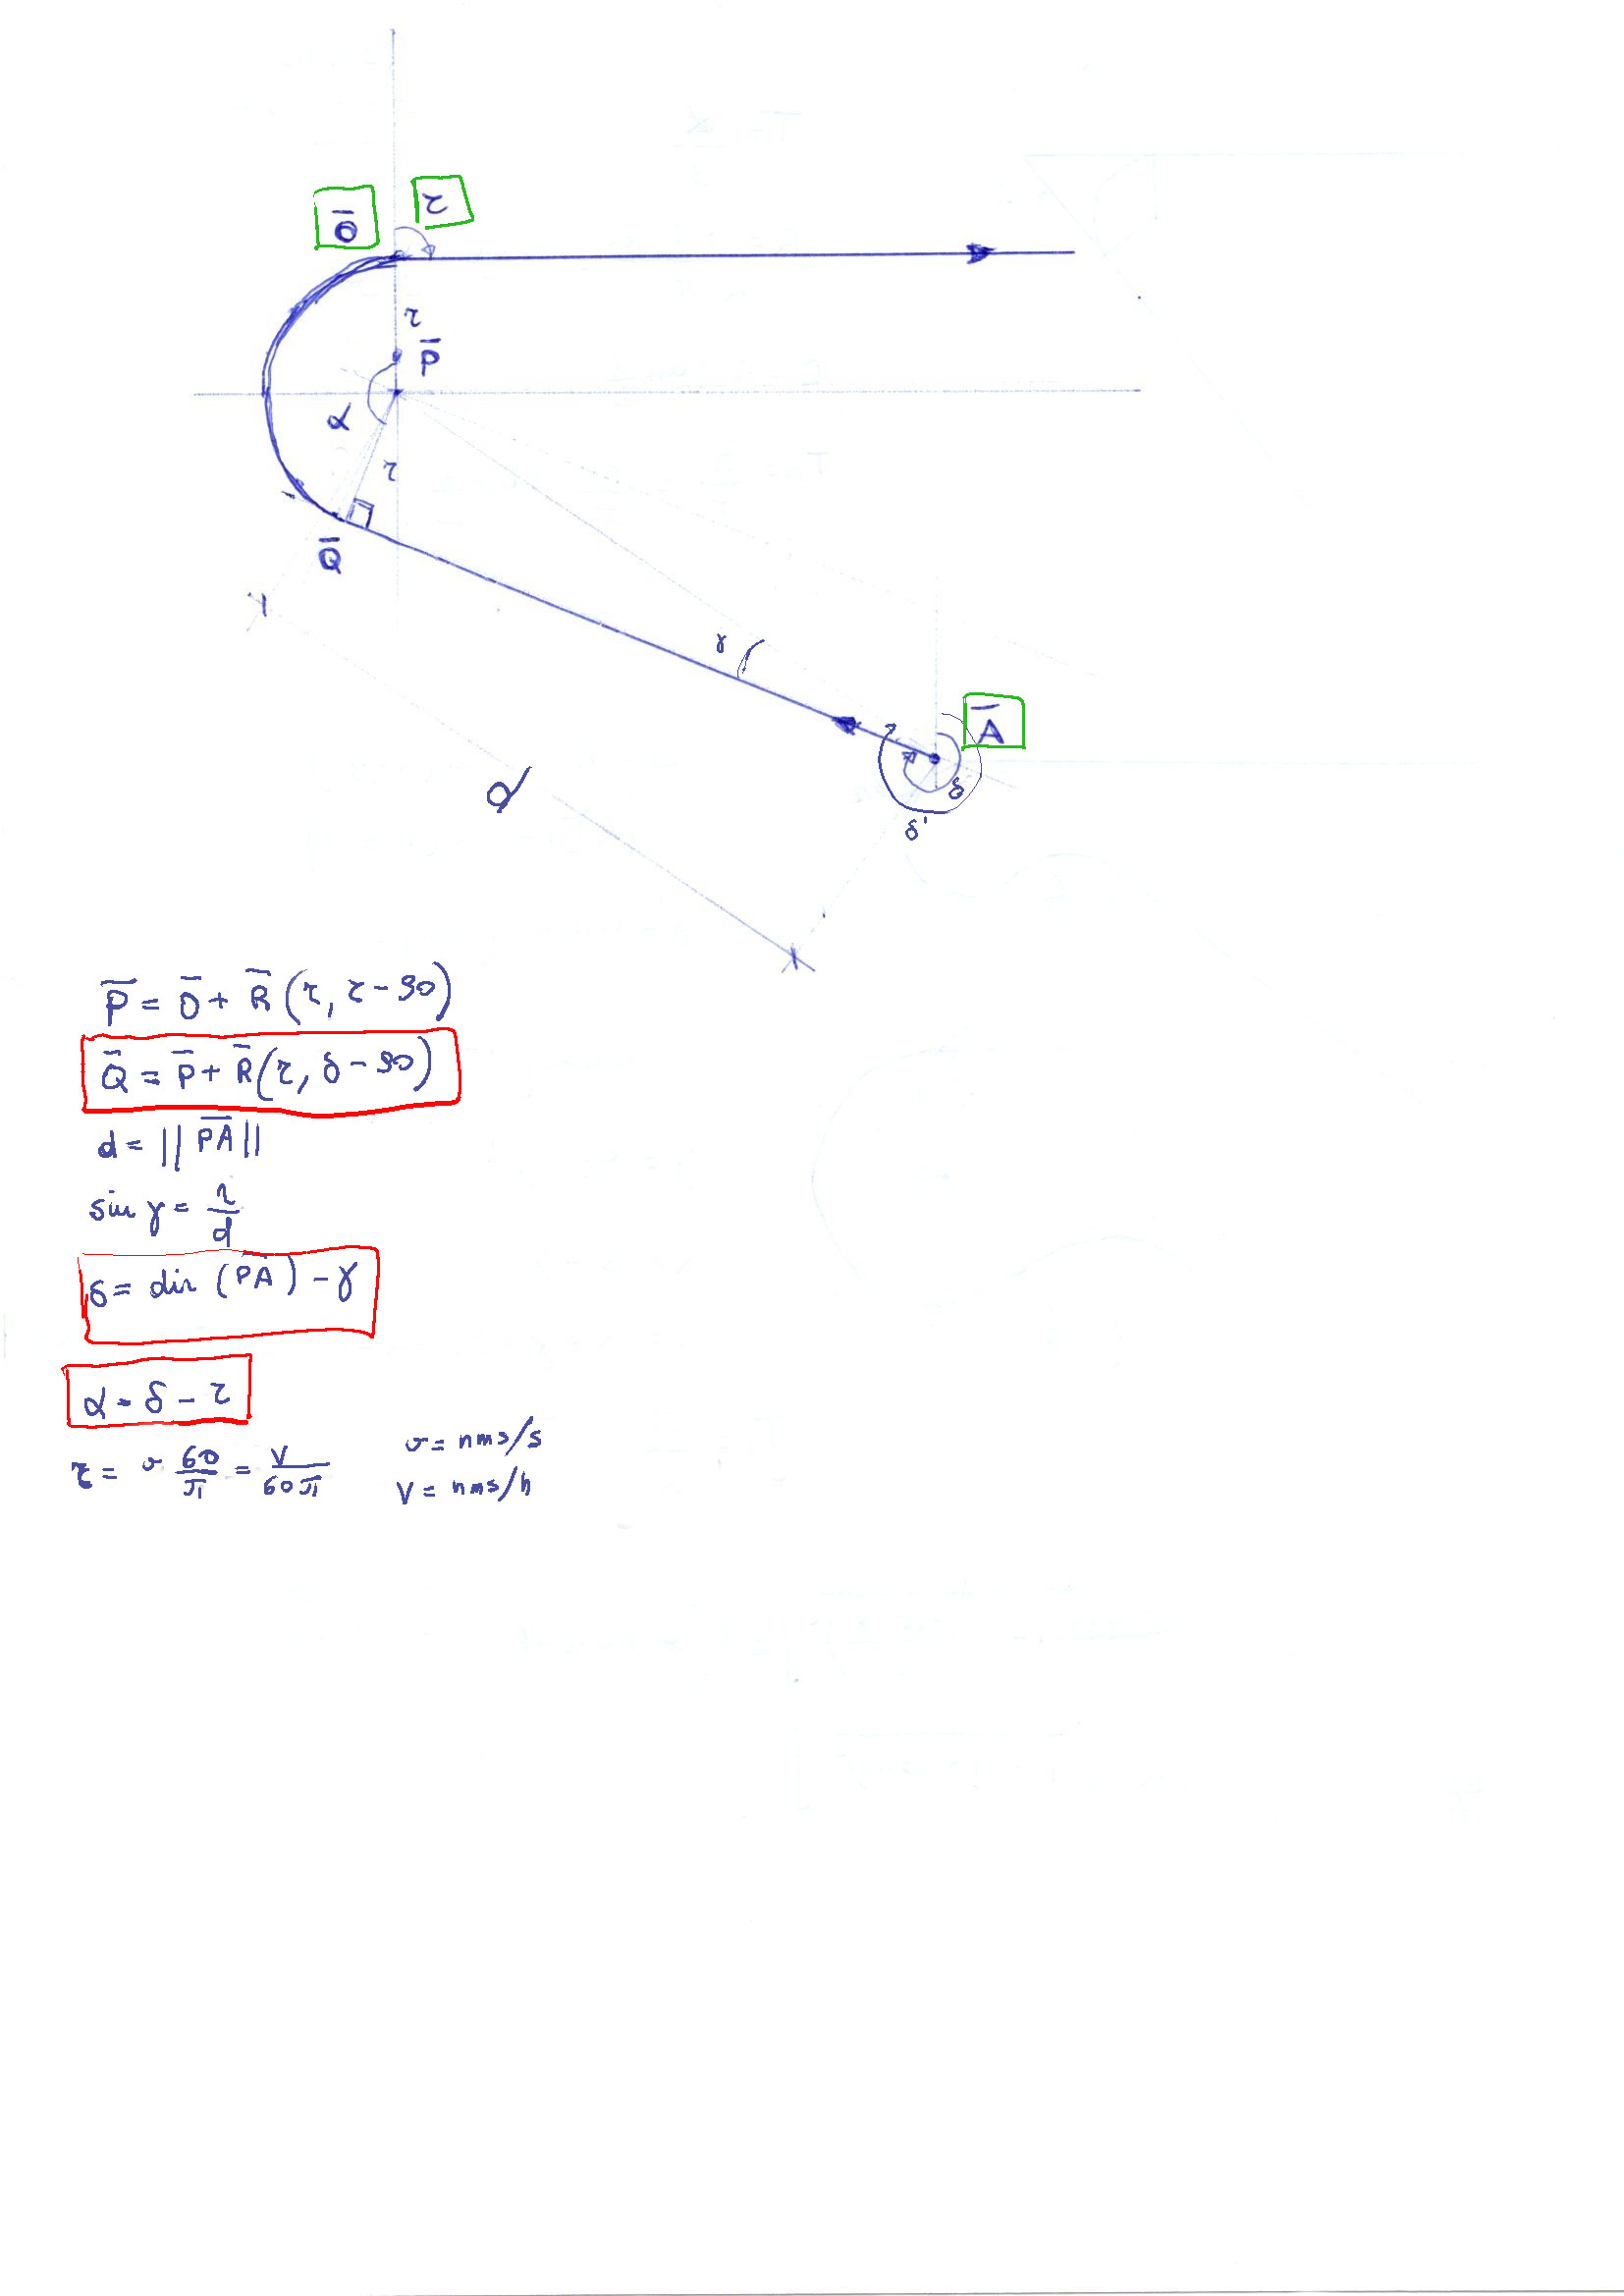 O̅ τ
r
P̅
α
r
Q̅
γ
A̅
δ
d
δ'
P̅ = O̅ + R̅ (r, τ - 90)
Q̅ = P̅ + R̅ (r, δ - 90)
d = || P̅A̅ ||
sin γ = r/d
δ = dir (P̅A̅) - γ
α = δ - τ
r = v 60/π = V/60π v = nms/s
V = nms/h